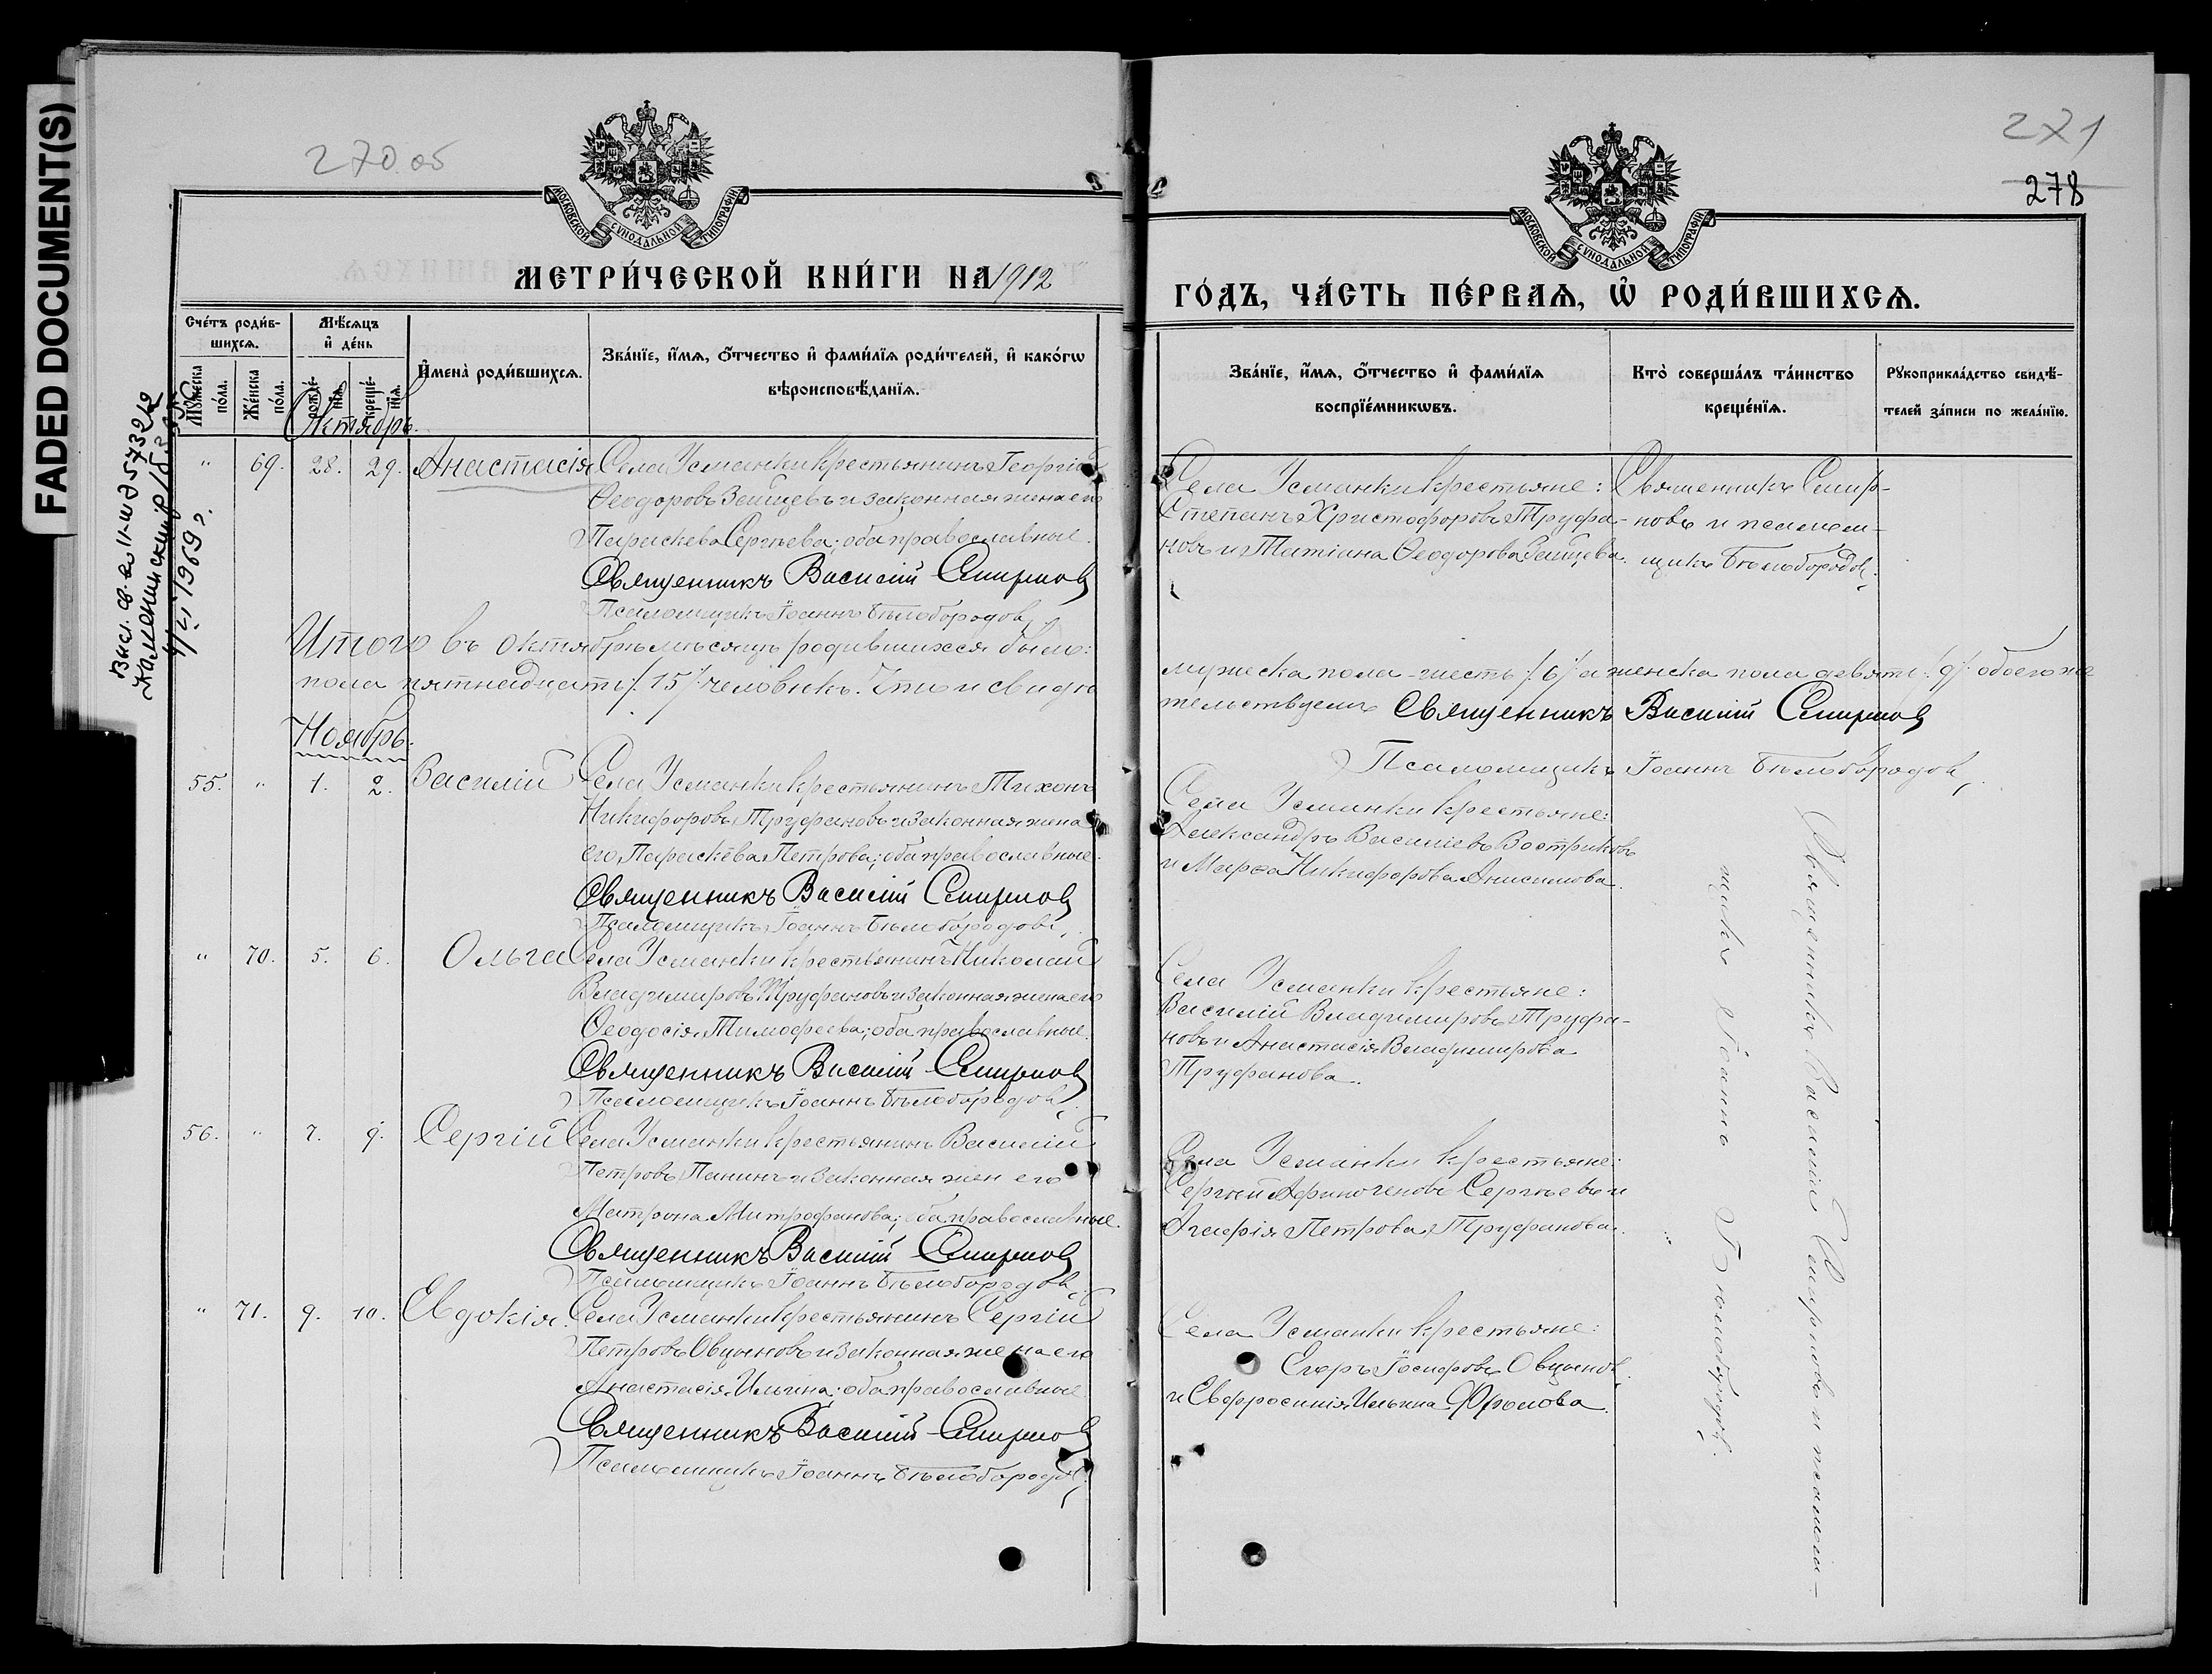 FADED DOCUMENT(S)
270 об
МОСКОВСКОЙ СѴНОДАЛЬНОЙ ТИПОГРАФІИ
МЕТРИ́ЧЕСКОЙ КНИ́ГИ НА 1912
Сче́тъ роди́в-
шихсѧ.
Мѣ́сѧцъ
и҆ де́нь
Мꙋ́жеска
по́ла.
Же́нска
по́ла.
рожде́-
нїѧ.
креще́-
нїѧ.
И҆мена̀ роди́вшихсѧ.
Зва́нїе, и҆́мѧ, ѻ҆́тчество и҆ фами́лїѧ роди́телей, и҆ како́гѡ
вѣроисповѣ́данїѧ.
Октябрь.
" 69. 28. 29. Анастасія Села Усманки крестьянинъ Георгій
Ѳеодоровъ Зайцевъ и законная жена его
Параскева Сергѣева; оба православные.
Священникъ Василій Смирновъ
Псаломщикъ Іоаннъ Бѣлобородовъ.
Итого въ октябрѣ мѣсяцѣ родившихся было:
пола пятнадцать /:15:/ человѣкъ. Что и свидѣ
Ноябрь.
55. " 1. 2. Василій Села Усманки крестьянинъ Тихонъ
Никифоровъ Труфановъ и законная жена
его, Параскева Петрова; оба православные.
Священникъ Василій Смирновъ
Псаломщикъ Іоаннъ Бѣлобородовъ.
" 70. 5. 6. Ольга Села Усманки крестьянинъ Николай
Владимировъ Труфановъ и законная жена его
Ѳеодосія Тимофеева; оба православные.
Священникъ Василій Смирновъ
Псаломщикъ Іоаннъ Бѣлобородовъ.
56. " 7. 9. Сергій Села Усманки крестьянинъ Василій
Петровъ Панинъ и законная жен его
Матрона Митрофанова; оба православные.
Священникъ Василій Смирновъ
Псаломщикъ Іоаннъ Бѣлобородовъ.
" 71. 9. 10. Евдокія. Села Усманки крестьянинъ Сергій
Петровъ Овцыновъ и законная жена его
Анастасія Ильина; оба православные
Священникъ Василій Смирновъ
Псаломщикъ Іоаннъ Бѣлобородовъ.
271
278
МОСКОВСКОЙ СѴНОДАЛЬНОЙ ТИПОГРАФІИ
ГО́ДЪ, ЧА́СТЬ ПЕ́РВАѦ, Ѡ҆ РОДИ́ВШИХСѦ.
Зва́нїе, и҆́мѧ, ѻ҆́тчество и҆ фами́лїѧ
воспрїе́мникѡвъ.
Кто̀ соверша́лъ та́инство
креще́нїѧ.
Рꙋкоприкла́дство свидѣ́-
телей за́писи по жела́нїю.
Села Усманки крестьяне:
Степанъ Христофоровъ Труфа-
новъ и Татіана Ѳеодорова Зайцева.
Священникъ Смир-
новъ и псалом-
щикъ Бѣлобородовъ.
мужеска пола - шесть /:6:/ а женска пола девять /:9:/ обоего же
тельствуемъ Священникъ Василій Смирновъ
Псаломщикъ Іоаннъ Бѣлобородовъ.
Села Усманки крестьяне:
Александръ Василіевъ Востриковъ
и Марѳа Никифорова Анисимова.
Села Усманки крестьяне:
Василій Владимировъ Труфа-
новъ и Анастасія Владимирова
Труфанова.
Села Усманки крестьяне:
Сергѣй Афиногеновъ Сергѣевъ и
Агафія Петрова Труфанова.
Села Усманки крестьяне:
Егоръ Іосифовъ Овцынов.
и Евфросинія Ильина Фролова.
Священникъ Василій Смирновъ и псалом-
щикъ Іоаннъ Бѣлобородовъ.